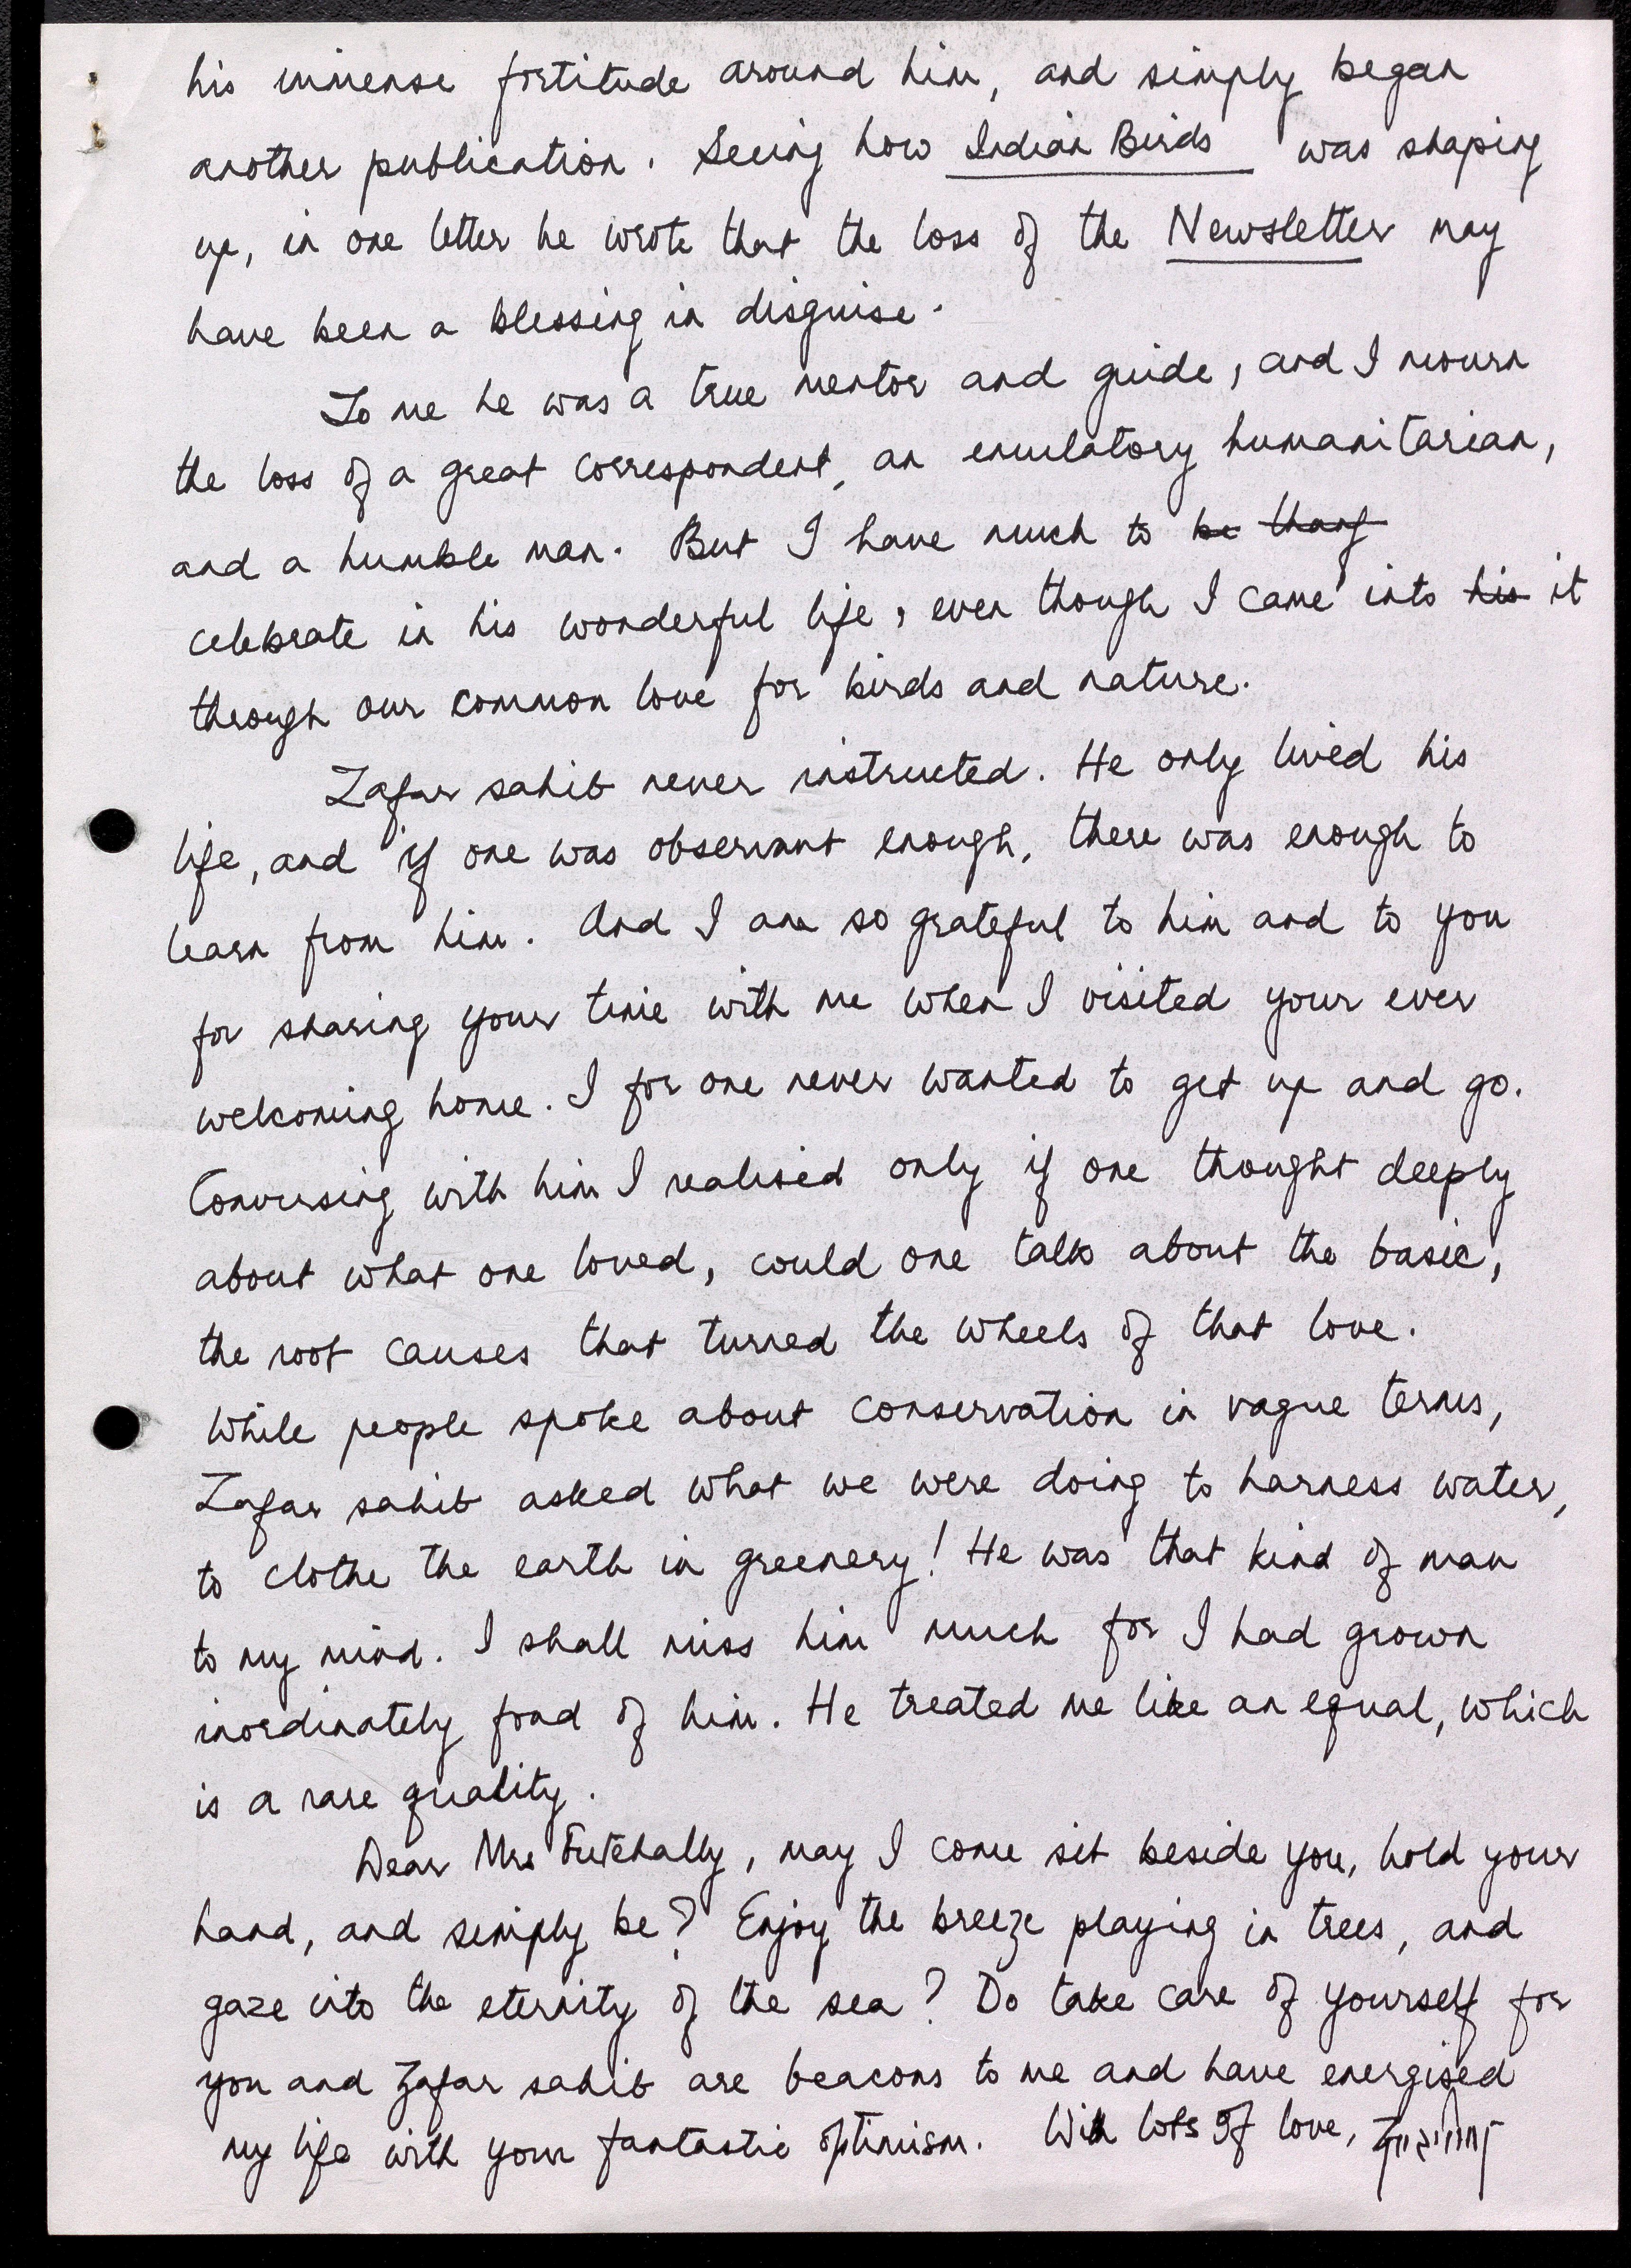 his immense fortitude around him, and simply began
another publication. Seeing how Indian Birds was shaping
up, in one letter he wrote that the loss of the Newsletter may
have been a blessing in disguise.
To me he was a true mentor and guide, and I mourn
the loss of a great correspondent, an emulatory humanitarian,
and a humble man. But I have much to be thang
celebrate in his wonderful life, even though I came into his it
through our common love for birds and nature.
Zafar sahib never instructed. He only lived his
life, and if one was observant enough, there was enough to
learn from him. And I am so grateful to him and to you
for sharing your time with me when I visited your ever
welcoming home. I for one never wanted to get up and go.
Conversing with him I realised only if one thought deeply
about what one loved, could one talk about the basic,
the root causes that turned the wheels of that love.
While people spoke about conservation in vague terms,
Zafar sahib asked what we were doing to harness water,
to clothe the earth in greenery! He was that kind of man
to my mind. I shall miss him much for I had grown
inordinately fond of him. He treated me like an equal, which
is a rare quality.
Dear Mrs Futehally, may I come sit beside you, hold your
hand, and simply be? Enjoy the breeze playing in trees, and
gaze into the eternity of the sea? Do take care of yourself for
you and Zafar sahib are beacons to me and have energised
my life with your fantastic optimism. With lots of love,